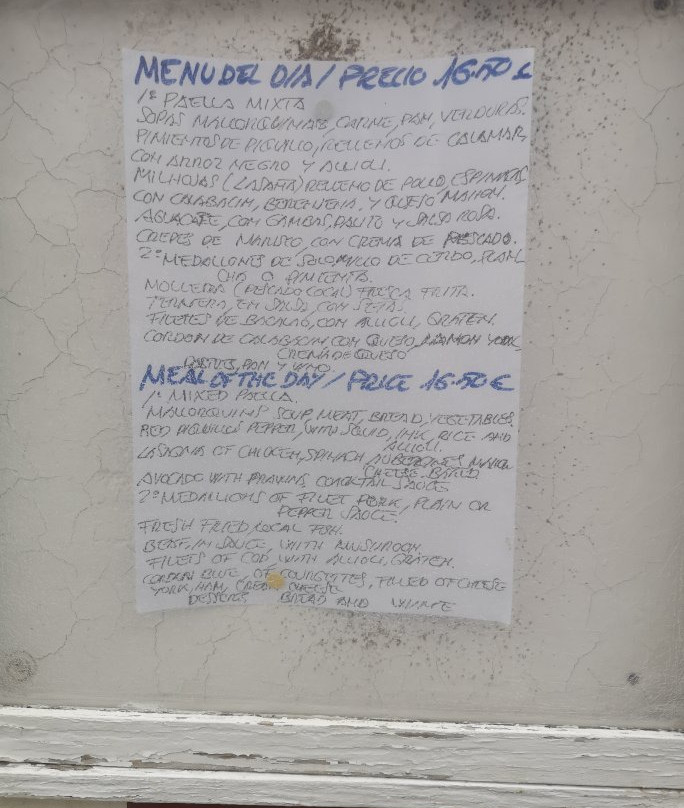 MENU DEL DIA / PRECIO 16.50 €
1º PAELLA MIXTA
SOPAS MALLORQUINAS, CARNE, PAN, VERDURAS.
PIMIENTOS DE PIQUILLO, RELLENOS DE CALAMAR,
CON ARROZ NEGRO Y ALLIOLI.
MILHOJAS (LASAÑA) RELLENO DE POLLO, ESPINACAS
CON CALABACIN, BERENJENA, Y QUESO MAHON.
AGUACATE, CON GAMBAS, PALITO Y SALSA ROSA.
CREPES DE MARISCO, CON CREMA DE PESCADO.
2º MEDALLONES DE SOLOMILLO DE CERDO, PLAN
CHA O PIMIENTA.
MOLLERA (PESCADO LOCAL) FRESCA FRITA.
TERNERA, EN SALSA CON SETAS.
FILETES DE BACALAO, CON ALLIOLI, GRATEN.
CORDON DE CALABACIN CON QUESO, JAMON YORK,
CREMA DE QUESO
POSTRES, PAN Y VINO.
MEAL OF THE DAY / PRICE 16.50 €
1º MIXED PAELLA.
MALLORQUINS SOUP, MEAT, BREAD, VEGETABLES.
RED PIQUILLO PEPPER, WITH SQUID, INK, RICE AND
ALLIOLI.
LASAGNA OF CHICKEN, SPINACH AUBERGINES, MAHON
CHEESE. BAKED
AVOCADO WITH PRAWNS COCKTAIL SAUCE
2º MEDALLIONS OF FILET PORK, PLAIN OR
PEPPER SAUCE.
FRESH FRIED, LOCAL FISH.
BEEF, IN SAUCE, WITH MUSHROOM.
FILETS OF COD WITH ALLIOLI, GRATEN.
CORDON BLUE, OF COURGETTES, FILLED OF CHEESE
YORK, HAM, CREAM CHEESE
DESSERTS BREAD AND